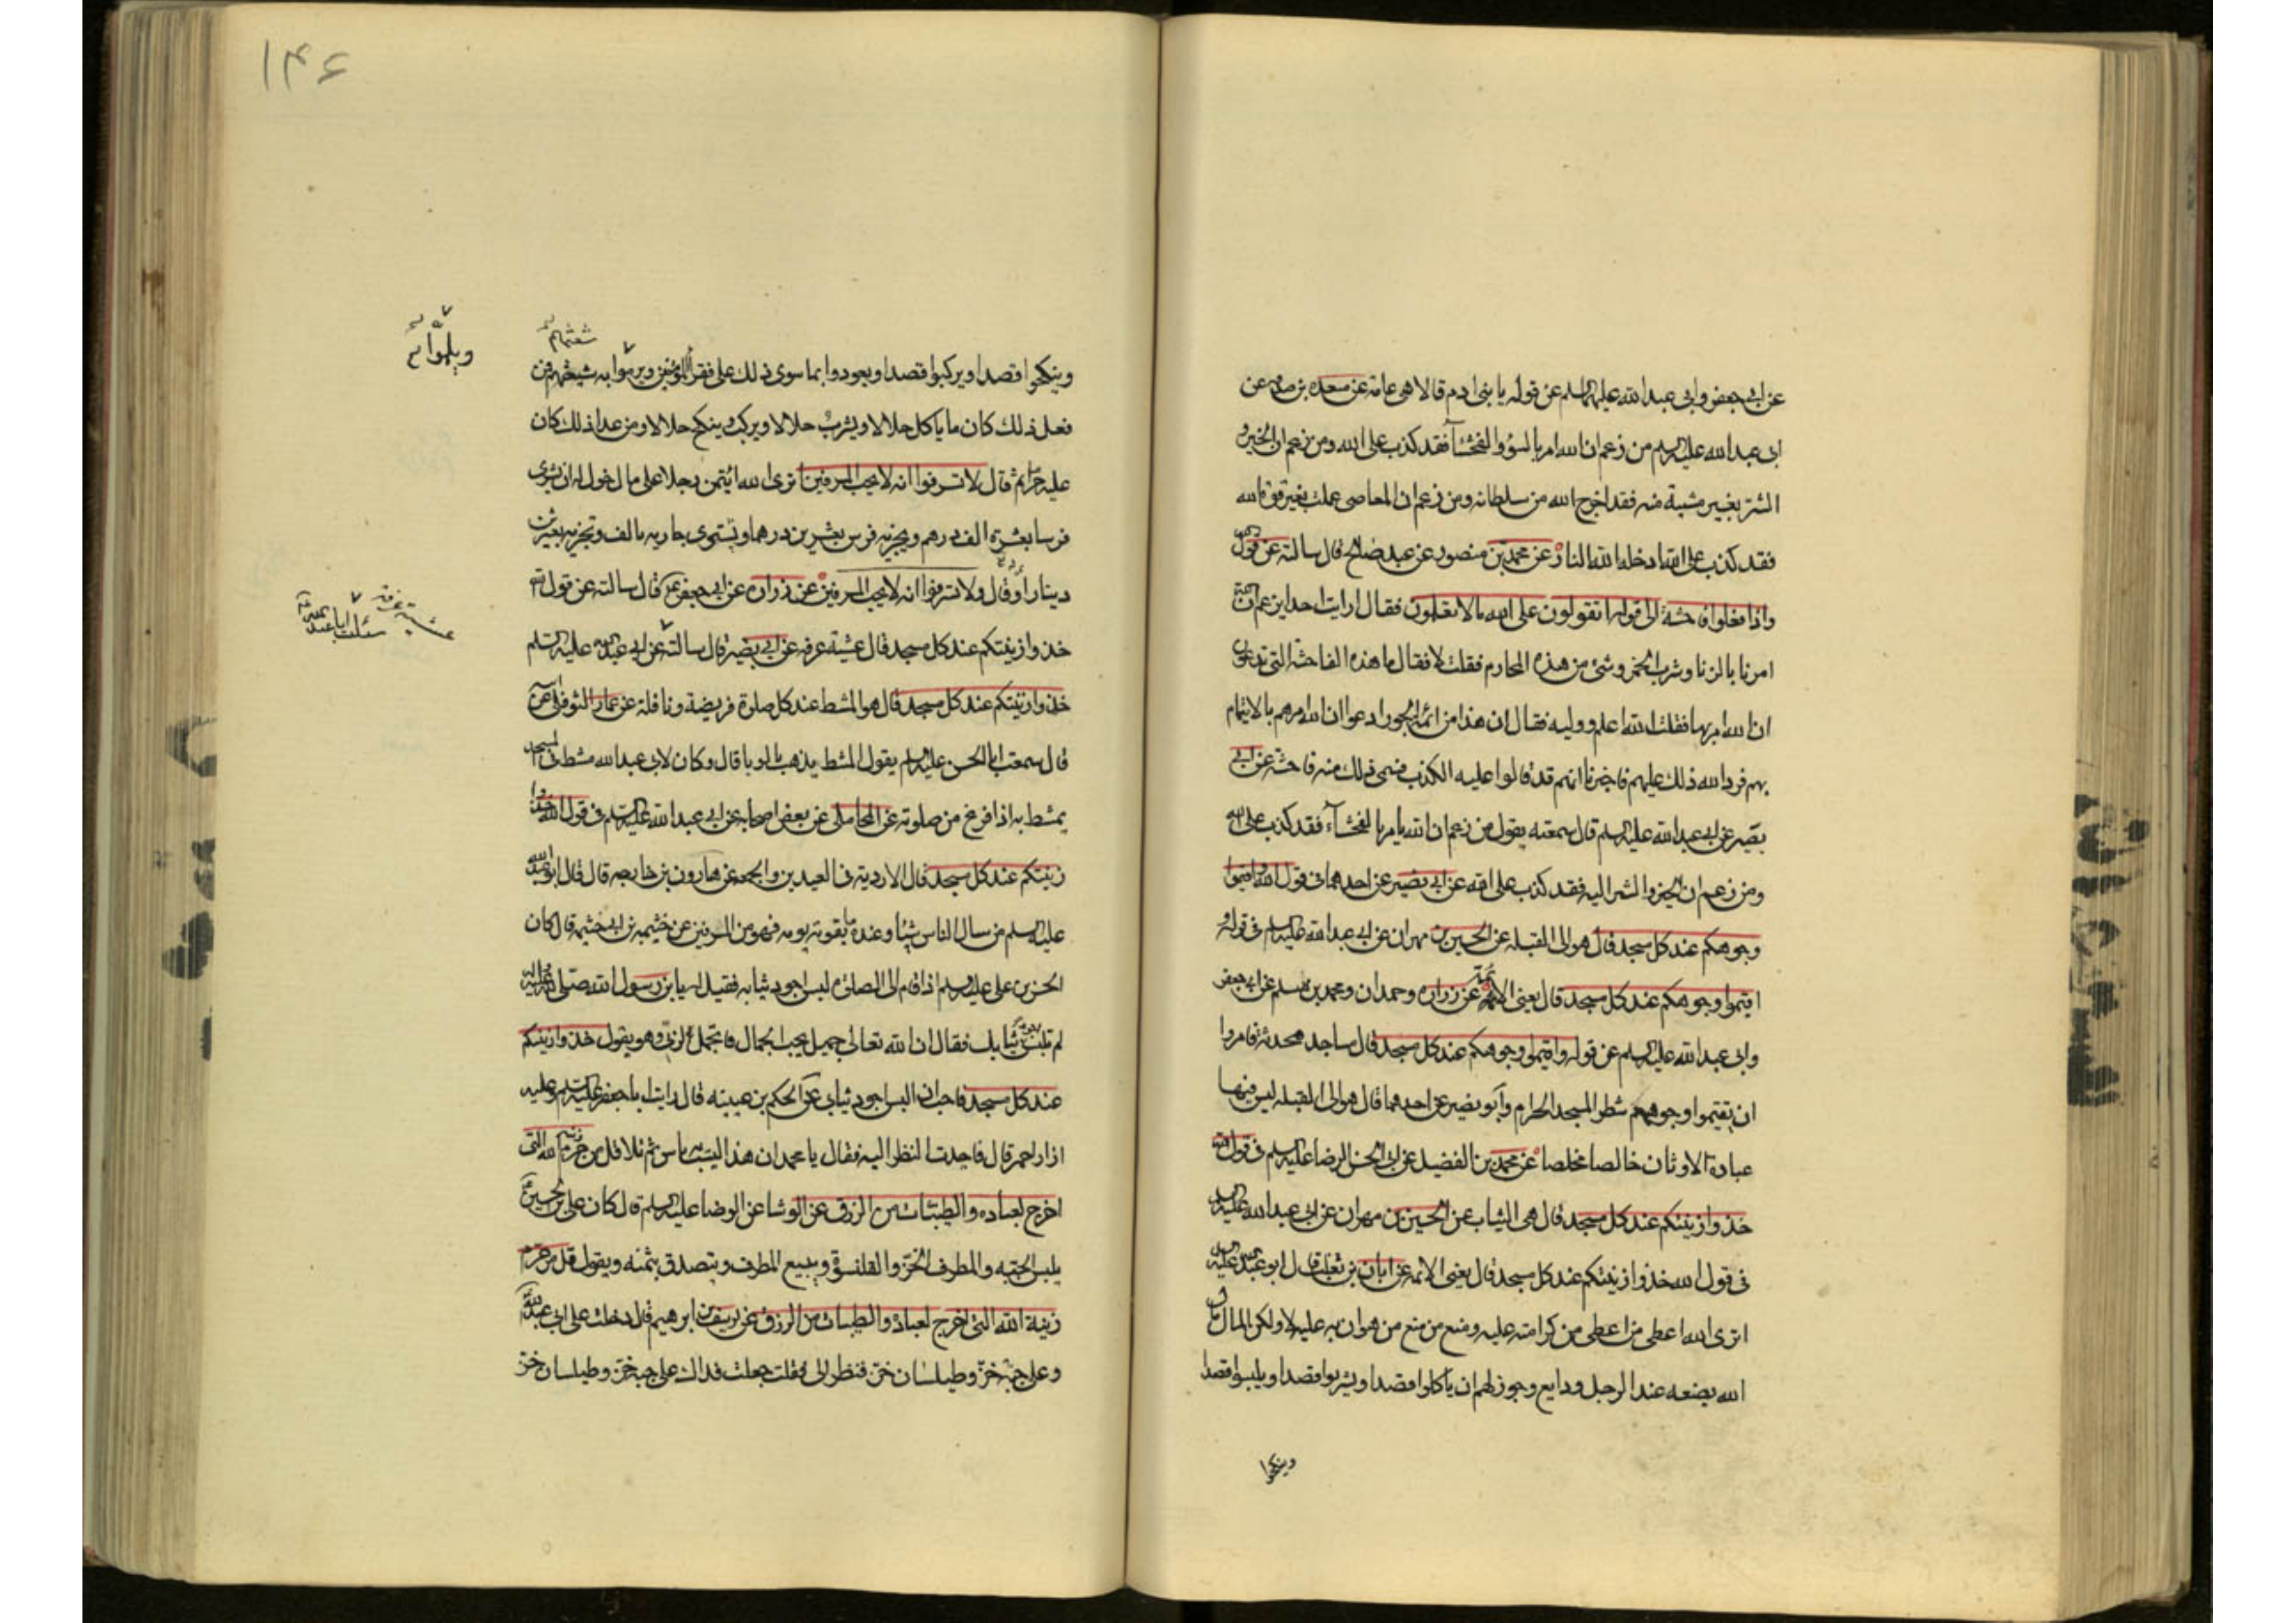 عن ابي جعفر وابي عبد الله عليهما السلم عن قوله يا بنى ادم قالا هي عامة عن مسعدة بن صدقه عن
ابى عبد الله عليه السلم من زعم ان الله امر بالسوء والفحشآء فقد كذب على الله ومن زعم ان الخير و
الشر بغير مشية منه فقد اخرج الله من سلطانه ومن زعم ان المعاصى عملت بغير قوة الله
فقد كذب على الله ادخله الله النار عن محمد بن منصور عن عبد صالح قال سالته عن قول الله
واذا فعلوا فاحشة الى قوله اتقولون على الله مالا تعلمون فقال ارايت احدا يزعم ان الله
امرنا بالزنا وشرب الخمر وشئ من هذه المحارم فقلت لا فقال ما هذه الفاحشة التى تدعون
ان الله امر بها فقلت الله اعلم ووليه فقال ان هذا من ائمة الجور ادعوا ان الله امرهم بالايتمام
بهم فرد الله ذلك عليهم فاخبرنا انهم قد قالوا عليه الكذب فسمى ذلك منه فاحشة عن ابي
بصير عن ابي عبد الله عليه السلم قال سمعته يقول من زعم ان الله يامر بالفحشآء فقد كذب على الله
ومن زعم ان الخير والشر اليه فقد كذب على الله عن ابي بصير عن احدهما فى قول الله واقيموا
وجوهكم عند كل مسجد قال هو الى القبله عن الحسين بن مهران عن ابي عبد الله عليه السلم فى قوله و
اقيموا وجوهكم عند كل مسجد قال يعنى الائمة عن زراره وحمدان ومحمد بن مسلم عن ابي جعفر
وابى عبد الله عليه السلم عن قوله واقيموا وجوهكم عند كل مسجد قال مساجد محدثه فامروا
ان يقيموا وجوههم شطر المسجد الحرام وابو بصير عن احدهما قال هو الى القبله ليس فيها
عبادة الاوثان خالصا مخلصا عن محمد بن الفضيل عن ابي الحسن الرضا عليه السلم فى قول الله
خذوا زينتكم عند كل مسجد قال هى الثياب عن الحسين بن مهران عن ابى عبد الله عليه السلم
فى قول الله خذوا زينتكم عند كل مسجد قال يعنى الائمه عن ابان بن تغلب قال ابو عبد الله عليه السلم
اترى الله اعطى من اعطى من كرامته عليه ومنع من منع من هوان به عليه لا ولكن المال مال
الله يضعه عند الرجل ودايع وجوز لهم ان ياكلوا قصدا ويشربوا قصدا ويلبسوا قصدا
وينكحوا
۱۴۶
وينكحوا قصدا ويركبوا قصدا ويعودوا بما سوى ذلك على فقراء المؤمنين ويرموا به شعثهم فمن
ويلموا به
فعل ذلك كان ما ياكل حلالا ويشرب حلالا ويركب وينكح حلالا ومن عدا ذلك كان
عليه حراما ثم قال لا تسرفوا انه لا يحب المسرفين اترى الله ائتمن رجلا على مال خول له ان يشترى
فرسا بعشرة الف درهم ويجزيه فرس بعشرين درهما ويشترى جاريه بالف وتجزيه بعشرين
دينارا وقال ولا تسرفوا انه لا يحب المسرفين عن زراره عن ابي جعفر قال سالته عن قول الله
خذوا زينتكم عند كل مسجد قال عشية عرفه عن ابي بصير قال سالته عن ابي عبد الله عليه السلم
عشية عرفة سئلت ابا عبد الله
خذوا زينتكم عند كل مسجد قال هو المشط عند كل صلوة فريضة ونافلة عن عمار النوفلى عن ابيه
قال سمعت ابا الحسن عليه السلم يقول المشط يذهب بالوبا قال وكان لابى عبد الله مشط فى المسجد
يمشط به اذا فرغ من صلوته عن المحاملى عن بعض اصحابه عن ابي عبد الله عليه السلم فى قول الله خذوا
زينتكم عند كل مسجد قال الارديه فى العيدين والجمعه عن هارون بن خارجه قال قال ابو عبد الله
عليه السلم من سال الناس شيئا وعنده ما يقوته يومه فهو من المسرفين عن خثيمه بن ابي خثيمه قال كان
الحسن بن على عليه السلم اذا قام الى الصلوة لبس اجود ثيابه فقيل له يا بن رسول الله صلى الله عليه واله
لم تلبس اجود ثيابك فقال ان الله تعالى جميل يحب الجمال فاتجمل لربى وهو يقول خذوا زينتكم
عند كل مسجد فاحب ان البس اجود ثيابى عن الحكم بن عيينه قال رايت ابا جعفر عليه السلم وعليه
ازار احمر قال فاحددت النظر اليه فقال يا محمد ان هذا ليس به باس ثم تلا قل من حرم زينة الله التى
اخرج لعباده والطيبات من الرزق عن الوشا عن الرضا عليه السلم قال كان على بن الحسين
يلبس الجبه والمطرف الخز والقلنسوة ويبيع المطرف ويتصدق بثمنه ويقول قل من حرم
زينة الله التى اخرج لعباده والطيبات من الرزق عن يوسف بن ابرهيم قال دخلت على ابى عبد الله
وعلى جبة خز وطيلسان خز فنظر الى فقلت جعلت فداك على جبة خز وطيلسان خز